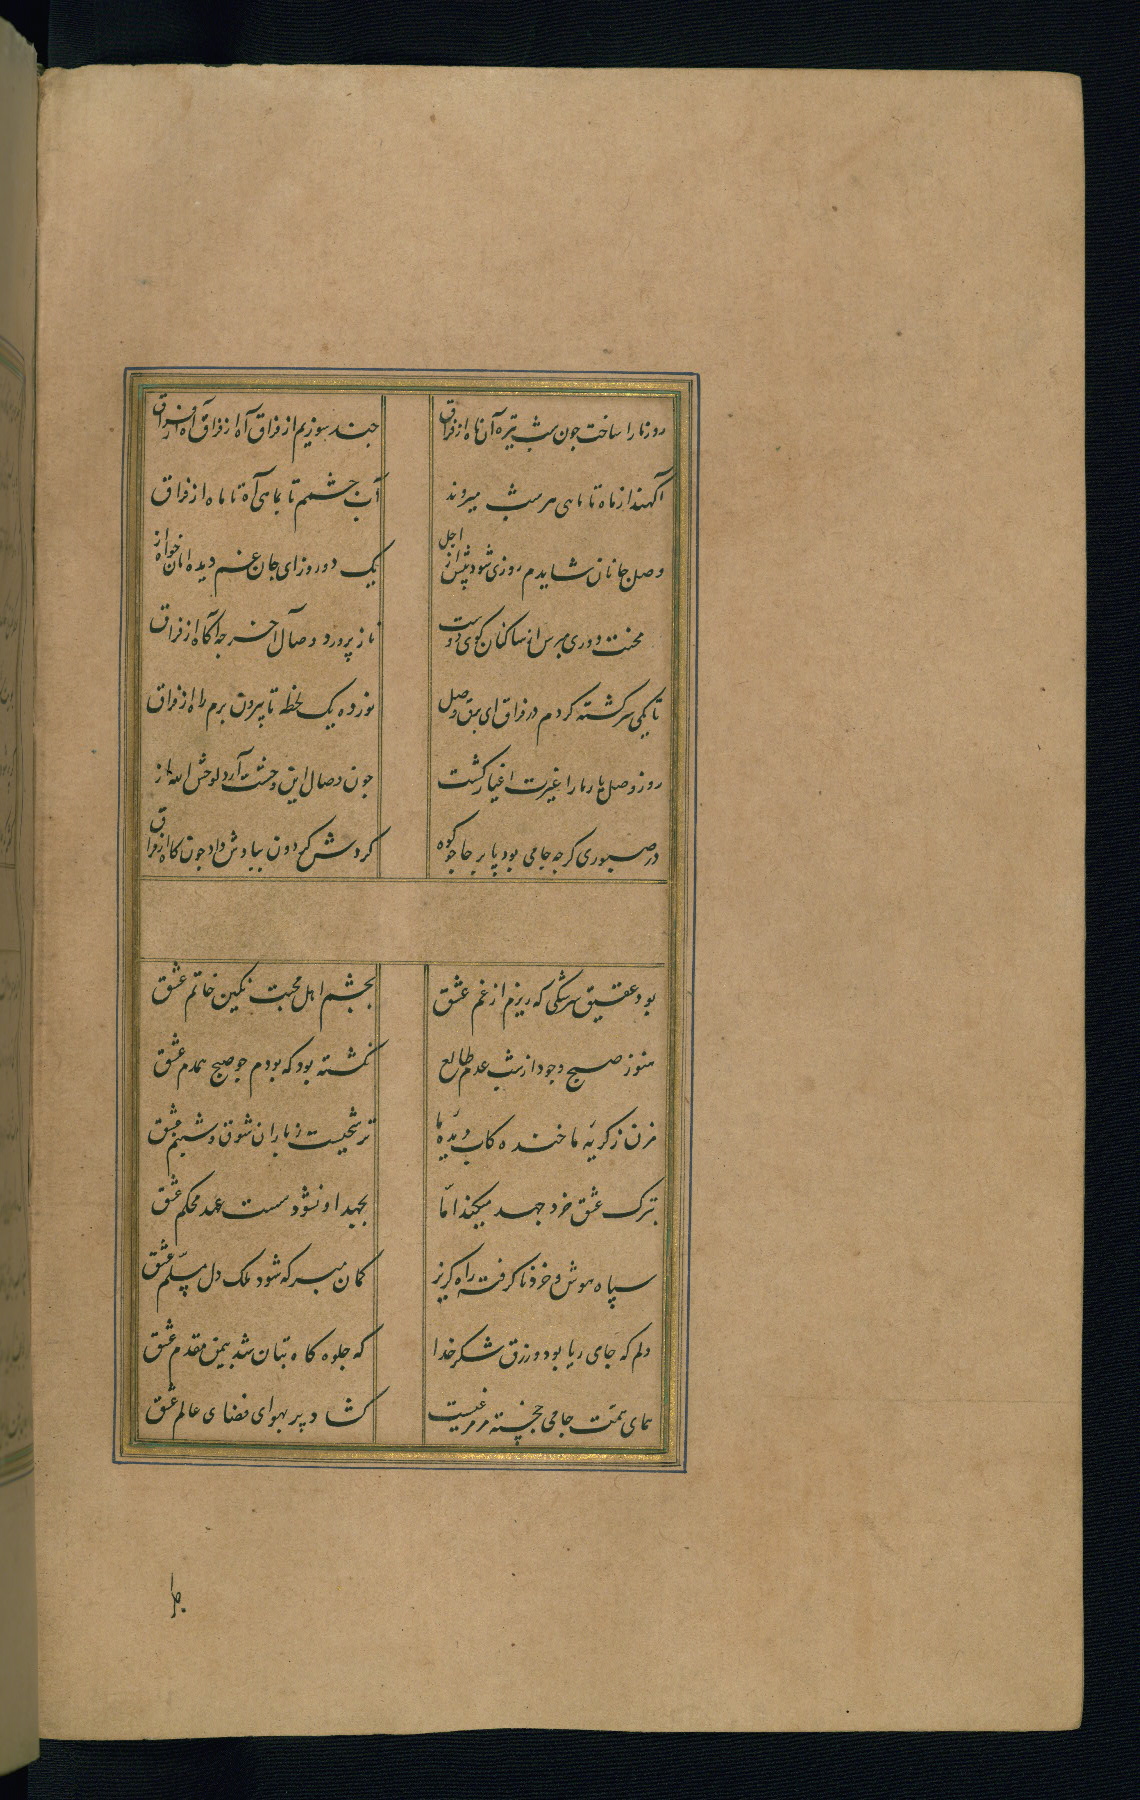 روز ما را ساخت چون شب تیره آن ماه از فراق
چند سوزیم از فراق آه از فراق آه از فراق
آگهند از ماه تا ماهی هر شب میروند
آب چشمم تا بماهی آه تا ماه از فراق
وصل جانان شایدم روزی شود پیش از اجل
یک دو روز ای جان غم دیده امان خواه از
محنت دوری مپرس از ساکنان کوی دوست
ناز پرورد وصال آخر چه آگاه از فراق
تا بکی سرکشته کردم در فراق ای برق وصل
نور ده یک لحظه تا بیرون برم راه از فراق
روز وصل یار ما را غیرت اغیار کشت
چون وصال این وحشت آرد لوحش الله از
در صبوری کرچه جامی بود پا بر جا چو کوه
کردش کردون بباد‌ش داد چون کاه از فراق
بود عقیق سرشکی که ریزم از غم عشق
بچشم اهل محبت نکین خاتم عشق
هنوز صبح وجود از شب عدم طالع
نکشته بود که بودم چو صبح همدم عشق
مزن ز کریه ما خنده کاب دیده ما
ترشحیست ز باران شوق و شبنم عشق
بترک عشق خرد جهد میکند اما
بجهد او نشود سست عهد محکم عشق
سپاه هوش و خرد نا کرفته راه کریز
کمان مبر که شود ملک دل مسلم عشق
دلم که جای ریا بود و زرق شکر خدا
که جلوه کاه بتان شد بیمن مقدم عشق
همای همت جامی خجسته مرغیست
کشاد پر بهوای فضای عالم عشق